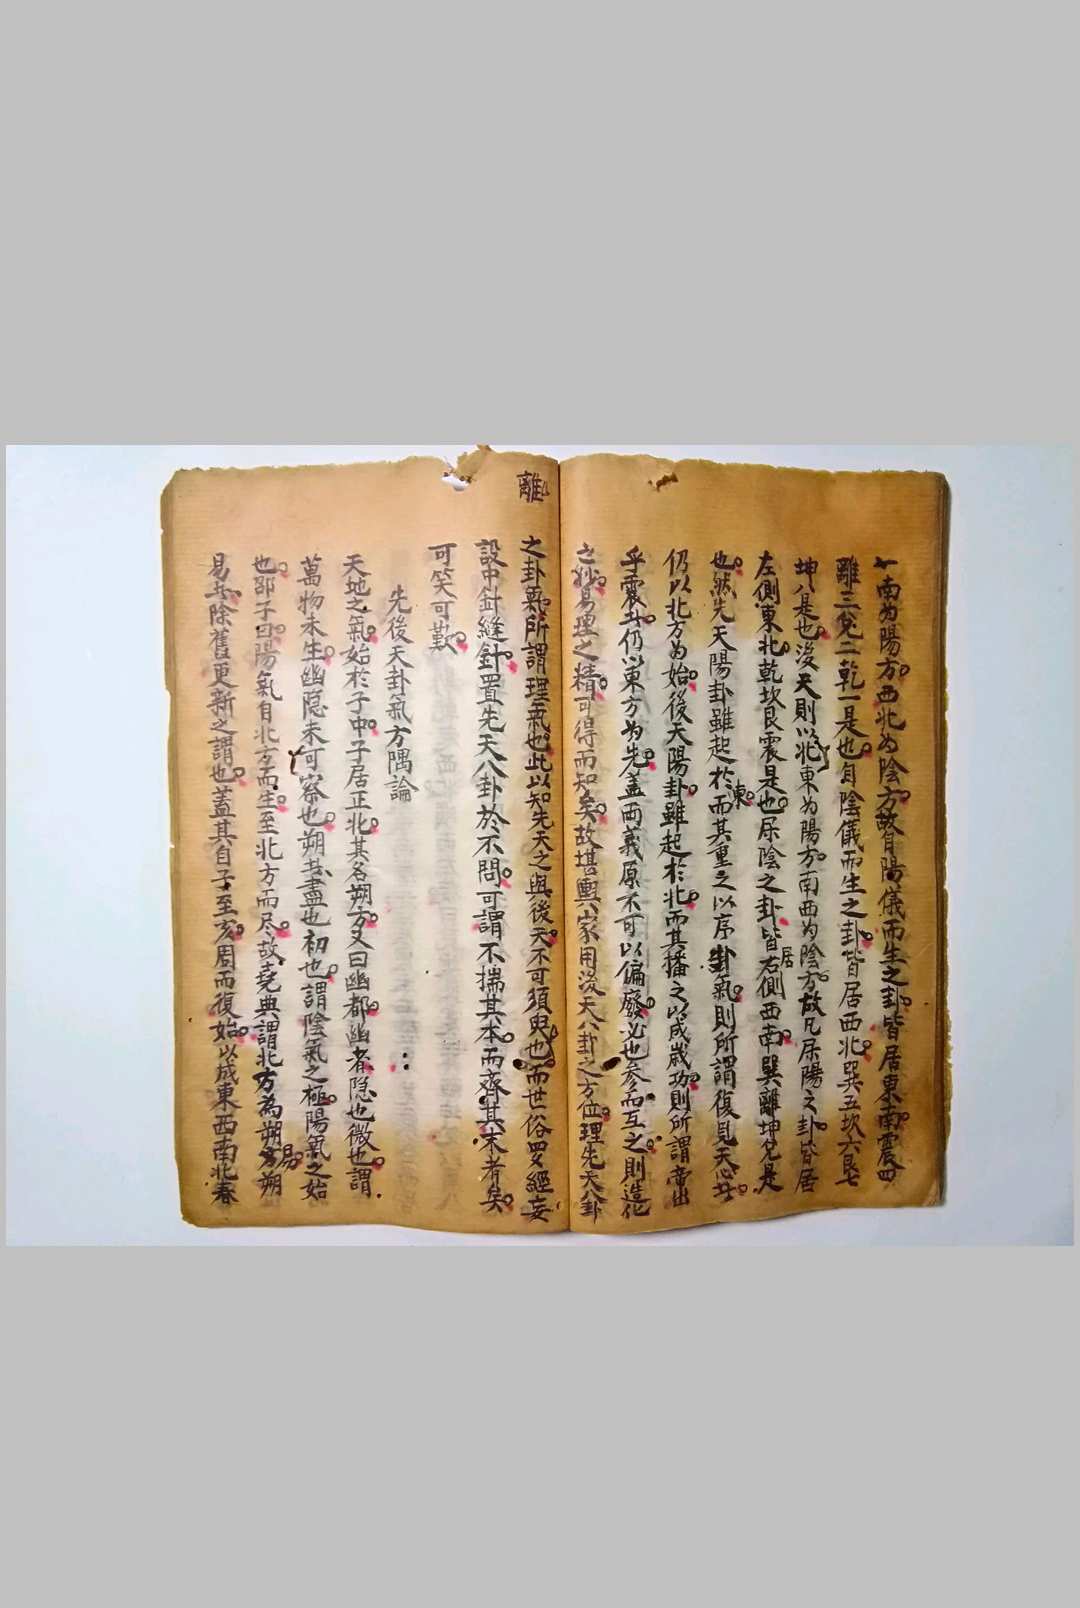 南為陽方西北為陰方故自陽儀而生之卦皆居東南震四
離三兌二乾一是也自陰儀而生之卦皆居西北巽五坎六艮七
坤八是也後天則以北東為陽方南西為陰方故凡屬陽之卦皆居
左側東北乾坎艮震是也屬陰之卦皆居右側西南巽離坤兌是
也然先天陽卦雖起於東而其重之以序卦氣則所謂復見天心
仍以北方為始後天陽卦雖起於北而其播之以成歲功則所謂帝出
乎震卦仍以東方為先蓋兩義原不可以偏廢必也參而互之則造化
之妙易理之精可得而知矣故堪輿家用後天八卦之方位理先天八卦
離
之卦氣所謂理氣也此以知先天之與後天不可須臾也而世俗經妄
設中針縫針置先天八卦於不問可謂不揣其本而齊其末者矣
可笑可歎
先後天卦氣方隅論
天地之氣始於子中子居正北其名朔方又曰幽都幽者隱也微也謂
萬物未生幽隱未可察也朔者盡也初也謂陰氣之極陽氣之始
也邵子曰陽氣自北方而生至北方而尽故堯典謂北方為朔易朔
易者除舊更新之謂也蓋其自子至亥周而復始以成東西南北春